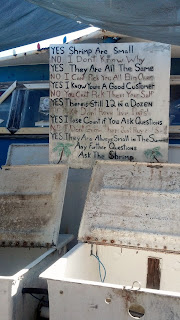 YES Shrimp Are Small
NO I Don't Know Why
YES They Are All The Same
NO I Can't Pick You All Big Ones
YES I Know You're A Good Customer
NO You Can't Pick Them Yourself
YES There is Still 12 in A DOZEN
YES I lose Count if You Ask Questions
YES They Are Always Small in The
Any Further Questions
Ask The Shrimp